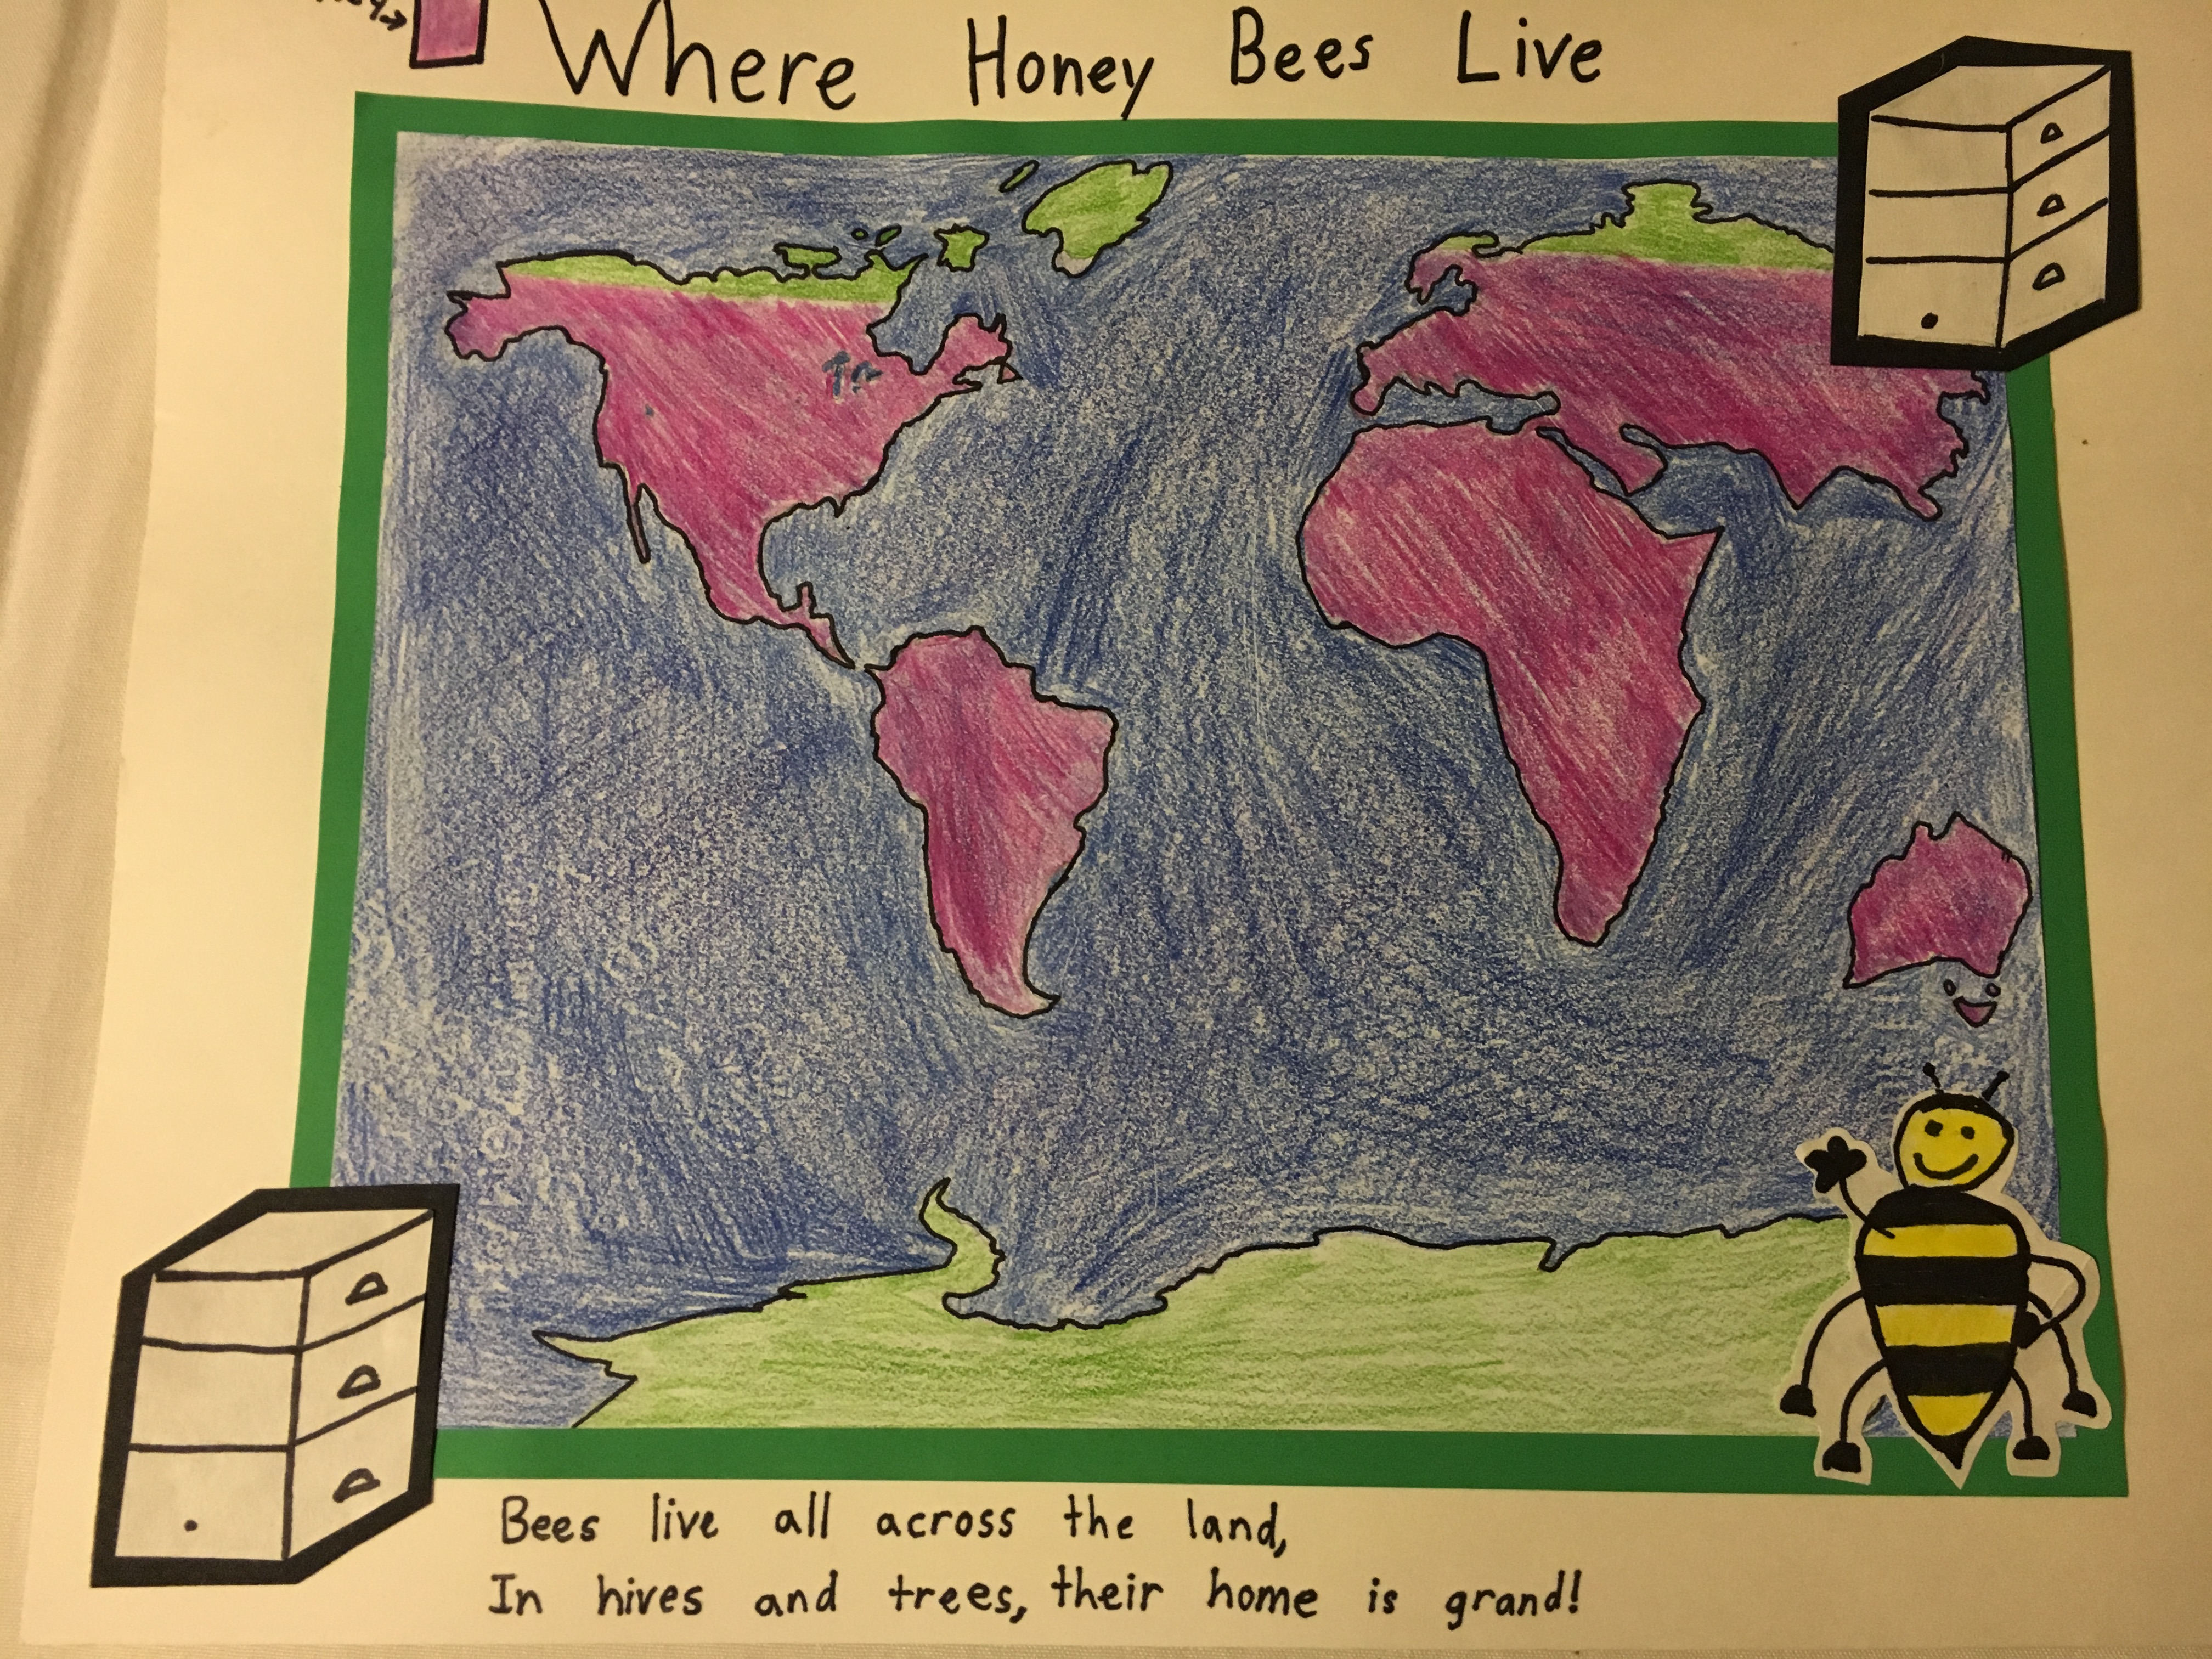 Where Honey Bees Live
Bees live all across the land,
In hives and trees, their home is grand!